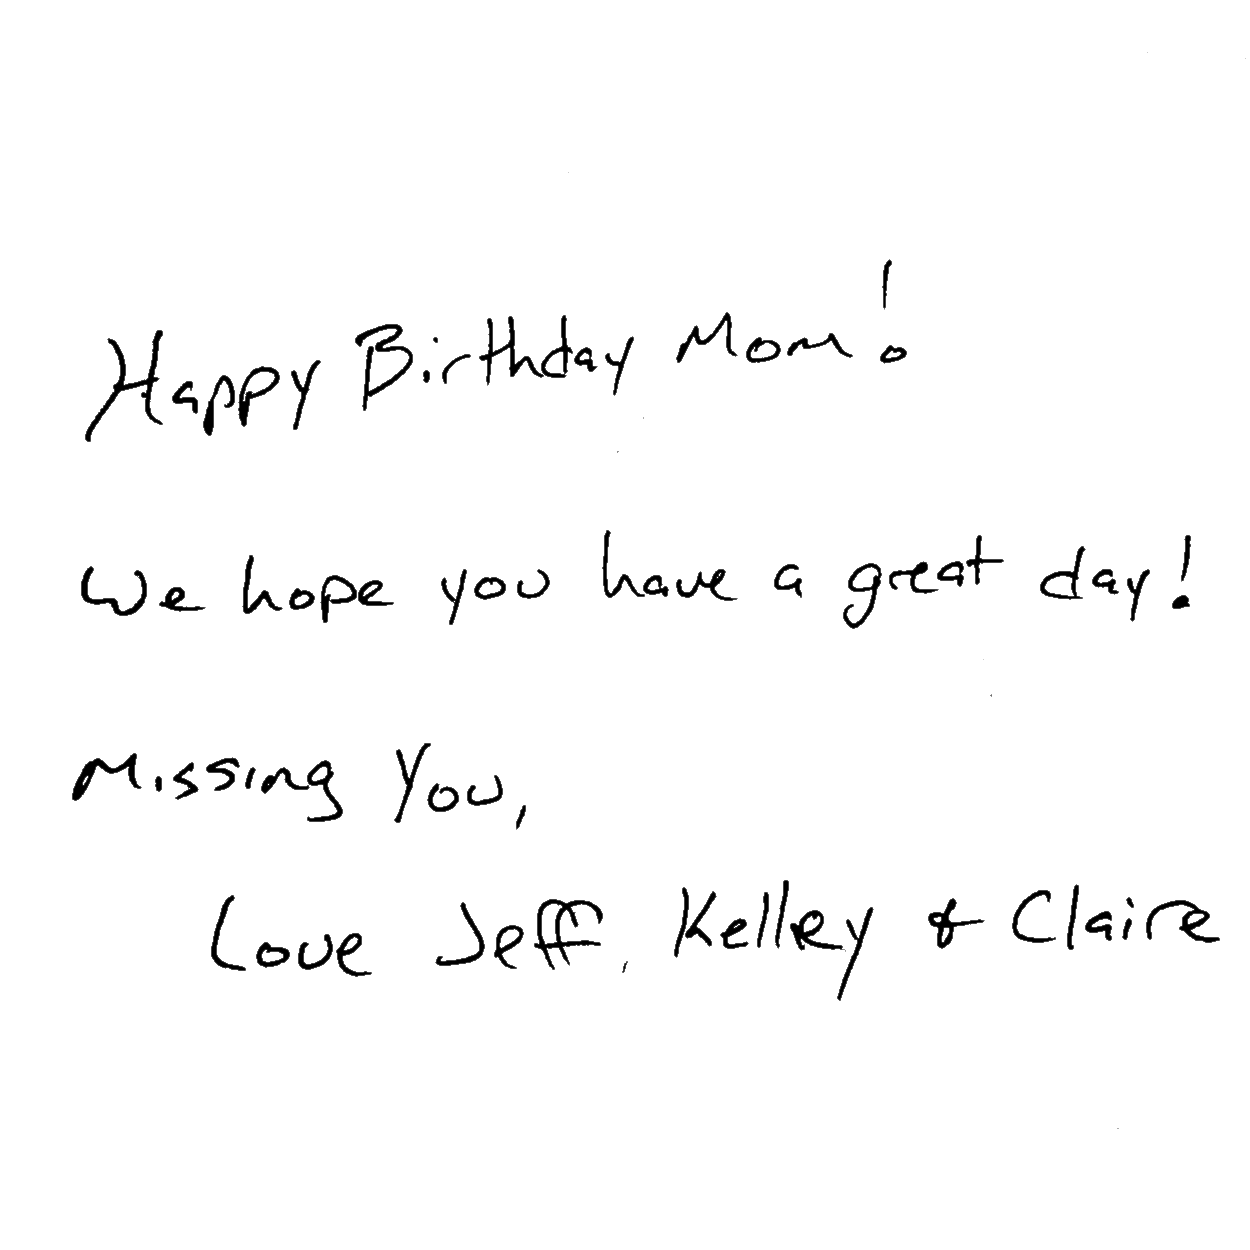 Happy Birthday Mom!
We hope you have a great day!
Missing You,
Love Jeff, Kelley & Claire